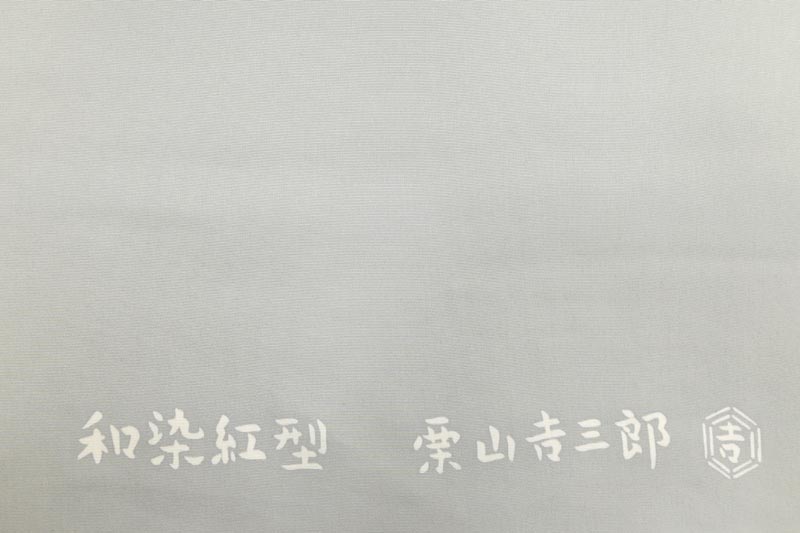 和染紅型 栗山吉三郎 吉